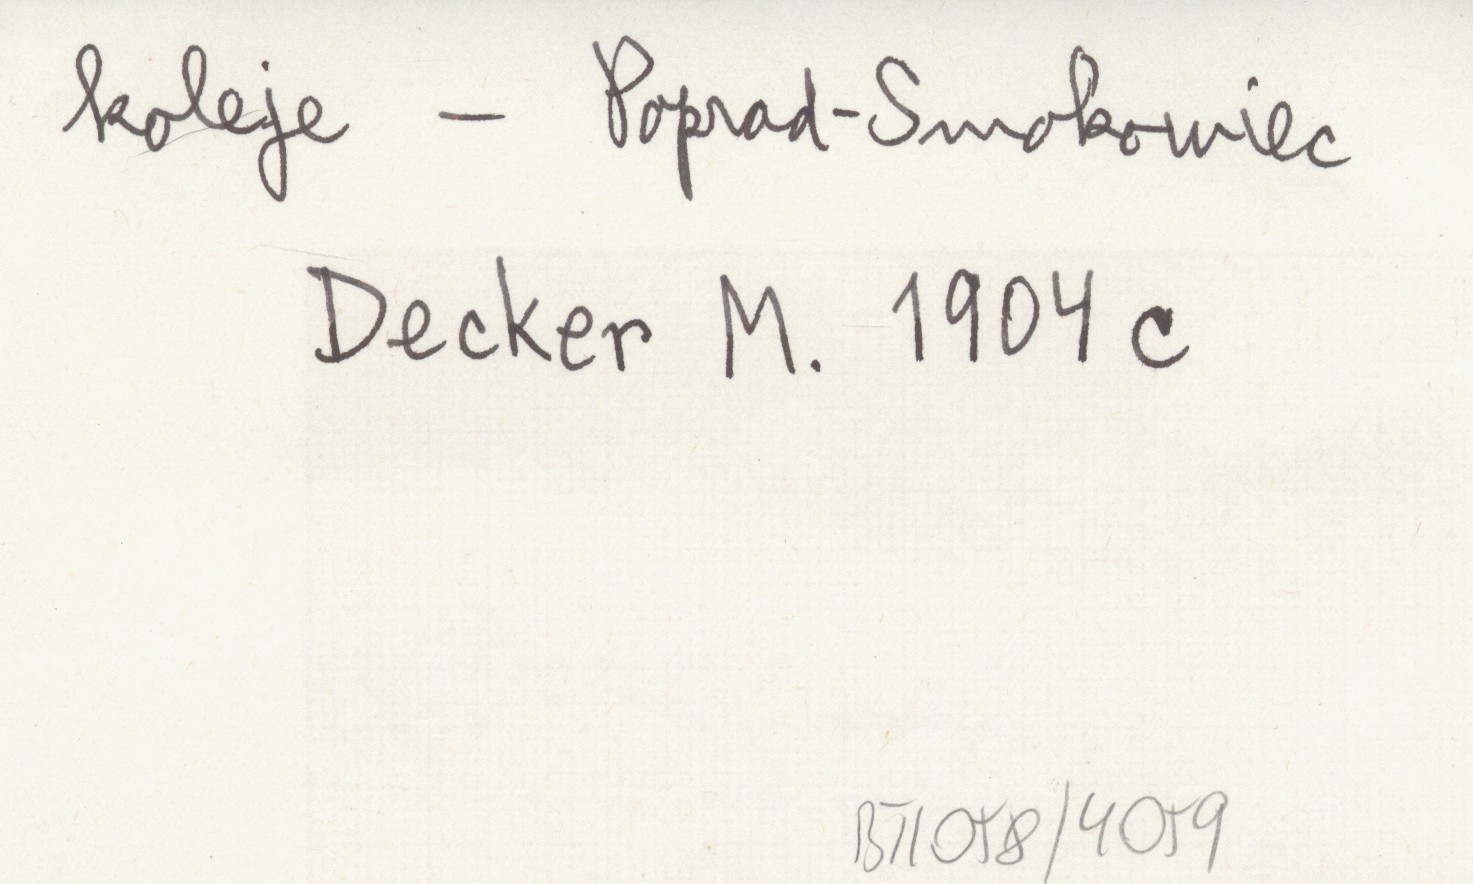 koleje - Poprad-Smokowiec
Decker M. 1904 c
BT1058/4059